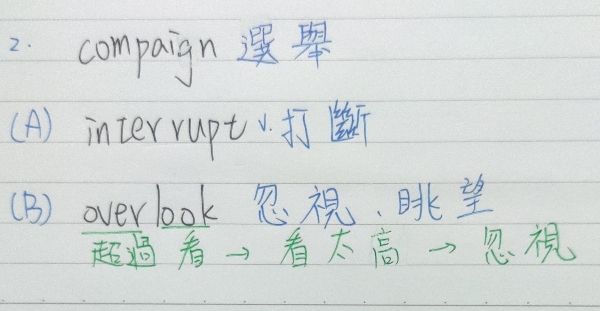 2. compaign 選舉
(A) interrupt v. 打斷
(B) overlook 忽視、眺望
超過 看 → 看太高 → 忽視